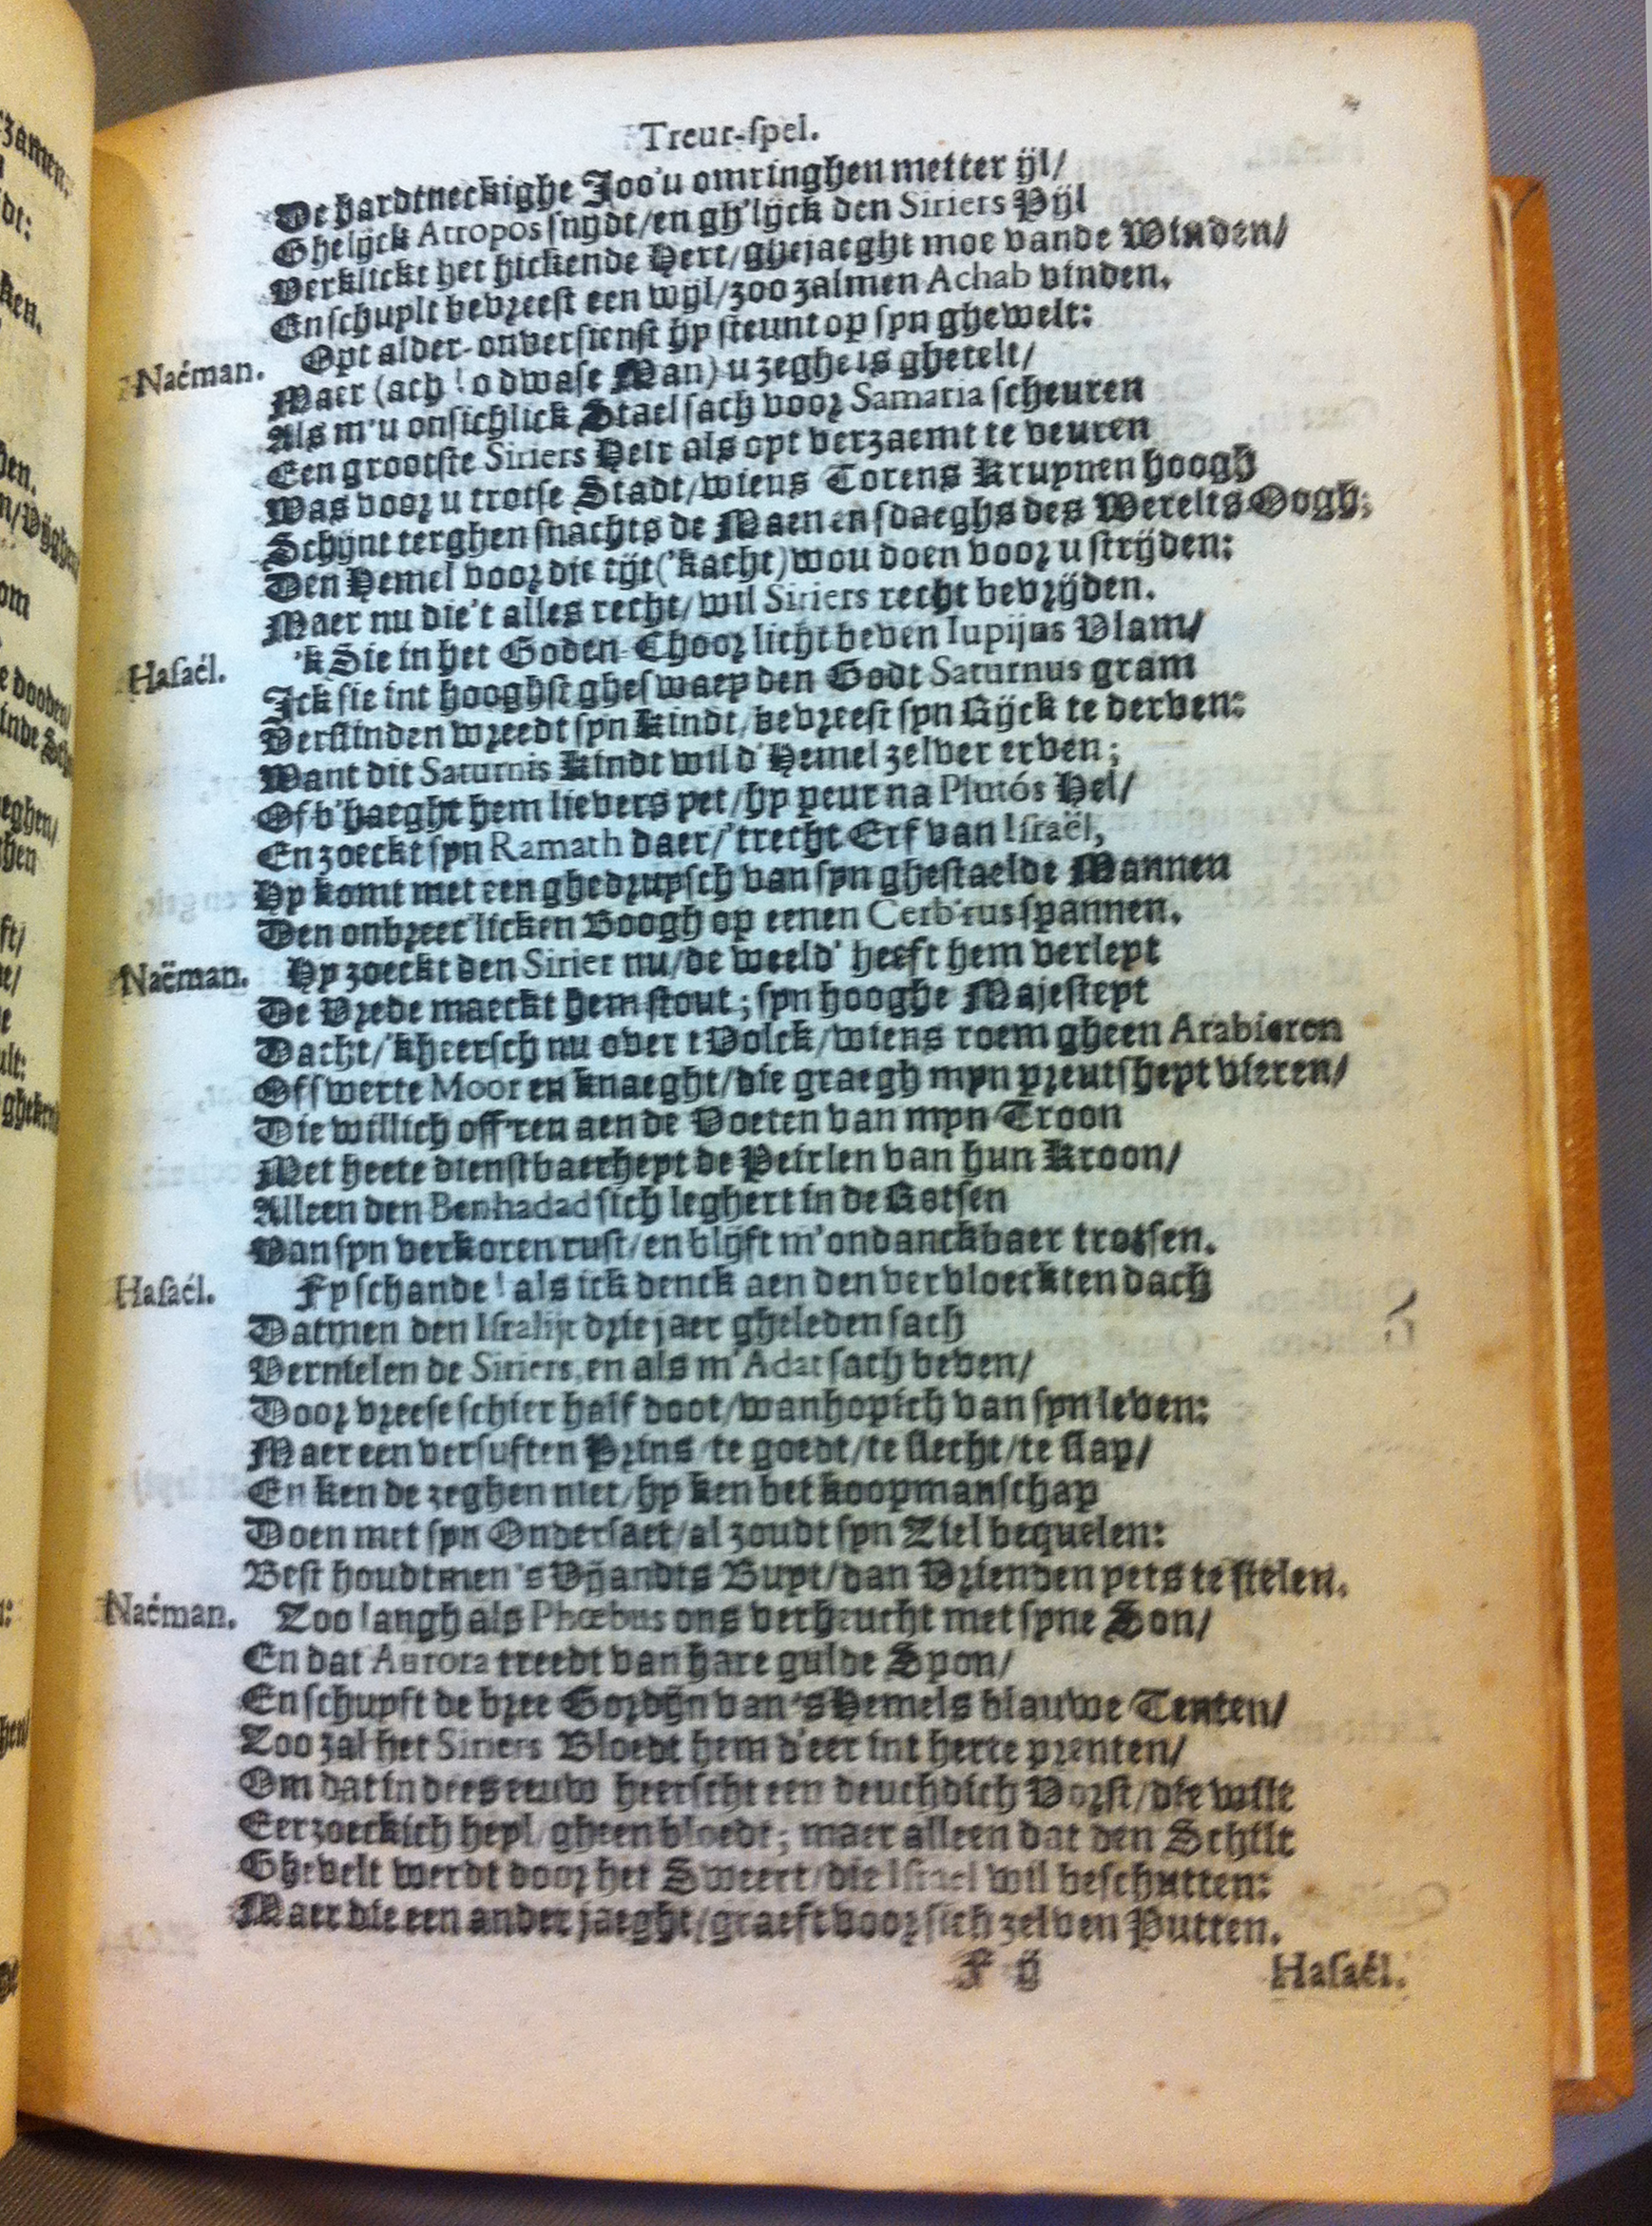 Treur-spel.
De hardtneckighe Joo'u omringhen metter ijl/
Ghelijck Atropos snydt/en gh'lijck den Siriers Pijl
Verklickt het hickende Hert/ghejaeght moe vande Winden/
En schuylt bevreest een wijl/zoo zalmen Achab vinden.
Naéman. Opt alder-onversienst hy steunt op syn ghewelt:
Maer (ach! o dwase Man) u zeghe is ghetelt/
Als m'u onsichlick Stael sach voor Samaria scheuren
Een grootste Siriers Heir als oyt verzaemt te veuren
Was voor u trotse Stadt/wiens Torens Kruynen hoogh
Schijnt terghen snachts de Maen en sdaeghs des Werelts Oogh;
Den Hemel voor die tijt('kacht) wou doen voor u strijden:
Maer nu die't alles recht/wil Siriers recht bevrijden.
Hasaél. 'k Sie in het Goden-Choor licht beven Iupijns Vlam/
Ick sie int hooghst gheswaey den Godt Saturnus gram
Verslinden wreedt syn Kindt/bevreest syn Rijck te derven:
Want dit Saturnis Kindt wil d'Hemel zelver erven;
Of b'haeght hem lievers yet/hy peur na Plutós Hel/
En zoeckt syn Ramath daer/'trecht Erf van Israël,
Hy komt met een ghedruysch van syn ghestaelde Mannen
Den onbreec'licken Boogh op eenen Cerb'rus spannen.
Naëman. Hy zoeckt den Sirier nu/de weeld' heeft hem verleyt
De Vrede maeckt hem stout; syn hooghe Majesteyt
Dacht/'kheersch nu over t Volck/wiens roem gheen Arabieren
Of swerte Mooren knaeght/die graegh myn preutsheyt vieren/
Die willich off'ren aen de Voeten van myn Troon
Met heete dienstbaerheyt de Peirlen van hun Kroon/
Alleen den Benhadad sich leghert in de Rotsen
Van syn verkoren rust/en blijft m'ondanckbaer trotsen.
Hasaél. Fy schande! als ick denck aen den vervloeckten dach
Datmen den Isralijt drie jaer gheleden sach
Vernielen de Siriers, en als m'Adat sach beven/
Door vreese schier half doot/wanhopich van syn leven:
Maer een versuften Prins/te goedt/te slecht/te slap/
En ken de zeghen niet/hy ken het koopmanschap
Doen met syn Ondersaet/al zoudt syn Ziel bequelen:
Best houdtmen 's Vijandts Buyt/dan Vrienden yets te stelen.
Naéman. Zoo langh als Phœbus ons verheucht met syne Son/
En dat Aurora treedt van hare gulde Spon/
En schuyft de bree Gordijn van 's Hemels blauwe Tenten/
Zoo zal het Siriers Bloedt hem d'eer int herte prenten/
Om dat in dees eeuw heerscht een deuchdich Vorst/die wilt
Eerzoeckich heyl/gheen bloedt; maer alleen dat den Schilt
Ghevelt werdt door het Sweert/die Israel wil beschutten:
Maer die een ander jaeght/graeft voor sich zelven Putten.
F ij Hasaél.